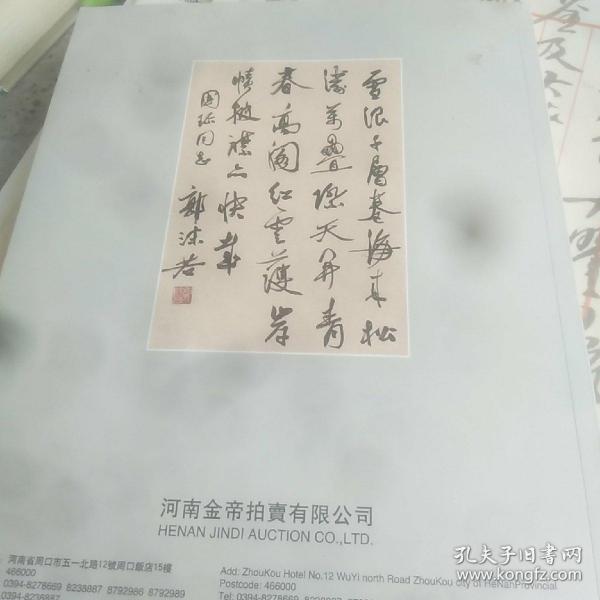 雪浪千層卷海来松
濤萬疊際天开青
春高阁红雲護岸
帻披襟亦快哉
国 同志 郭沫若
河南金帝拍賣有限公司
HENAN JINDI AUCTION CO.,LTD.
河南省周口市五一北路12號周口飯店15樓
466000
0394-8278669 8238887 8792986 8792989
Add: ZhouKou Hotel No.12 WuYi north Road ZhouKou city of HeNanProvincial
Postcode: 466000
Tel: 0394-8278669
孔夫子旧书网
www.kongfz.com